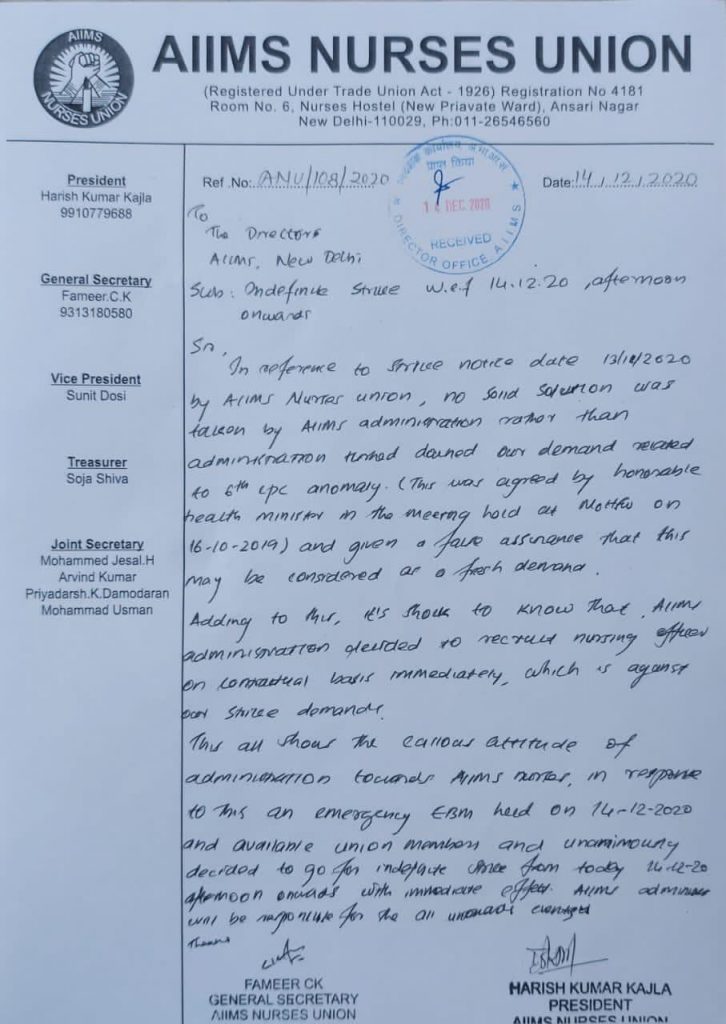 AIIMS
NURSES UNION
AIIMS NURSES UNION
(Registered Under Trade Union Act - 1926) Registration No 4181
Room No. 6, Nurses Hostel (New Priavate Ward), Ansari Nagar
New Delhi-110029, Ph:011-26546560
President
Harish Kumar Kajla
9910779688
General Secretary
Fameer.C.K
9313180580
Vice President
Sunit Dosi
Treasurer
Soja Shiva
Joint Secretary
Mohammed Jesal.H
Arvind Kumar
Priyadarsh.K.Damodaran
Mohammad Usman
Ref .No: ANU/108/2020
Date: 14/12/2020
प्राप्त किया
14 DEC 2020
RECEIVED
DIRECTOR OFFICE, AIIMS
To
The Director
AIIMS, New Delhi
Sub: Indefinite Strike w.e.f 14.12.20, afternoon
onwards
Sir,
In reference to strike notice date 2020
by AIIMS Nurses union, no solid solution was
taken by AIIMS administration rather than
administration turned downed our demand related
to 6th cpc anomaly. (This was agreed by honorable
health minister in the meeting held at on
16-10-2019) and given a false assurance that this
may be considered as a fresh demand.
Adding to this, it's shock to know that AIIMS
administration decided to recruit nursing officer
on contractual basis immediately, which is against
our strike demands.
This all shows the callous attitude of
administration towards AIIMS nurses, in response
to this an emergency EBM held on 14-12-2020
and available union members and unanimously
decided to go for indefinite strike from today 14-12-20
afternoon onwards with immediate effect. AIIMS
will be responsible for the all
Thanks
FAMEER CK
GENERAL SECRETARY
AIIMS NURSES UNION
HARISH KUMAR KAJLA
PRESIDENT
AIIMS NURSES UNION